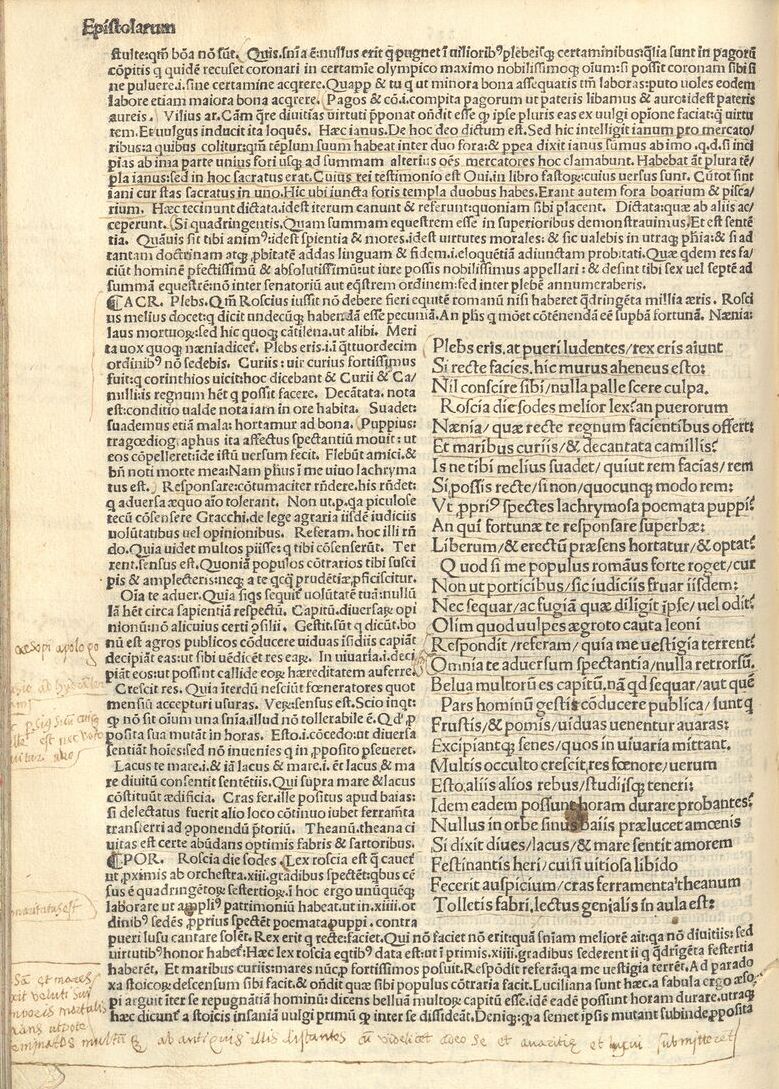 Epistolarum
stulte:qm̄ bōa nō sūt. Quis.sñia ē:nullus erit q̄ pugnet ī uiliorib⁹ plebeisq; certaminibus:q̄lia sunt in pagorū
cōpitis q quidē recuset coronari in certamīe olympico maximo nobilissimoq; oīum:si possit coronam sibi si
ne puluere.i.sine certamine acq̄rere. Quapp & tu q ut minora bona assequaris tm̄ laboras:puto uoles eodem
labore etiam maiora bona acq̄rere. Pagos & cō.i.compita pagorum ut pateris libamus & auro:idest pateris
aureis. Vilius ar. Cām q̄re diuitias uirtuti p̄ponat on̄dit esse q; ipse pluris eas ex uulgi opione faciat:q̄ uirtu
tem. Et uulgus inducit ita loquēs. Hæc ianus. De hoc deo dictum est. Sed hic intelligit ianum pro mercato/
ribus:a quibus colitur:qm̄ tēplum suum habeat inter duo fora:& ppea dixit ianus sūmus ab imo .q.d.si inci
pias ab ima parte unius fori usq; ad summam alterius oēs mercatores hoc clamabunt. Habebat āt plura tē/
pla ianus:sed in hoc sacratus erat. Cuius rei testimonio est Oui.in libro fastoꝝ:cuius uersus sunt. Cū tot sint
iani cur stas sacratus in uno. Hic ubi iuncta foris templa duobus habes. Erant autem fora boarium & pisca/
rium. Hæc recinunt dictata.idest iterum canunt & referunt:quoniam sibi placent. Dictata:quæ ab aliis ac/
ceperunt. Si quadringentis. Quam summam equestrem esse in superioribus demonstrauimus. Et est sentē
tia. Quāuis sit tibi anim⁹:idest spientia & mores.idest uirtutes morales: & sic ualebis in utraq; ph̄ia:& si ad
tantam doctrinam atq; p̄bitatē addas linguam & fidem.i.eloquētiā adiunctam probitati. Quæ q̄dem res fa/
ciūt hominē pfectissimū & absolutissimū:ut iure possis nobilissimus appellari : & desint tibi sex uel septē ad
summā equestrē:nō inter senatoriū aut eq̄strem ordinem:sed inter plebē annumeraberis.
ACR. Plebs. Qm̄ Roscius iussit nō debere fieri equitē romanū nisi haberet q̄dringēta millia æris. Rosci
us melius docet:q dicit undecūq; habendā esse pecuniā. An phs q mōet cōtēnendā eē supbā fortunā. Nænia:
laus mortuoꝝ:sed hic quoq; cātilena.ut alibi. Meri
ta uox quoq; nænia dicet. Plebs eris.i.ī q̄ttuordecim
ordinib⁹ nō sedebis. Curiis : uir curius fortissimus
fuit:q corinthios uicit:hoc dicebant & Curii & Ca/
milli:is regnum hēt q possit facere. Decātata. nota
est:conditio ualde nota iam in ore habita. Suadet:
suademus etiā mala: hortamur ad bona. Puppius:
tragœdiographus ita affectus spectantiū mouit: ut
eos cōpelleret:ide istū uersum fecit. Flebūt amici.&
bn̄ noti morte mea:Nam phus ī me uiuo lachryma
tus est. Responsare:cōtumaciter rn̄dere.his rn̄det:
q aduersa æquo aīo tolerant. Non ut.p.qa piculose
tecū cōsensere Gracchi.de lege agraria iisdē iudiciis
uolūtatibus uel opinionibus. Referam. hoc illi rn̄
do. Quia uidet multos piisse:q tibi cōsenserūt. Ter
rent.sensus est. Quoniā populos cōtrarios tibi susci
pis & amplecteris:neq; a te qcq̄ prudētiæ pficiscitur.
Oīa te aduer. Quia siqs sequit uolūtatē tuā:nullū
lā hēt circa sapientiā respectū. Capitū.diuersaꝝ opi
nionū:nō alicuius certi ꝯsilii. Gestit.sūt q dicūt.bo
nū est agros publicos cōducere uiduas isidiis capiāt
decipiāt eas:ut sibi uēdicēt res eaꝝ. In uiuaria.i.deci
piāt eos:ut possint callide eoꝝ hæreditatem auferre.
Crescit res. Quia iterdū nesciūt fœneratores quot
mensiū accepturi usuras. Veꝝ:sensus est. Scio inqt:
q nō sit oīum una sñia.illud nō tollerabile ē. Qd p
posita sua mutāt in horas. Esto.i.cōcedo:ut diuersa
sentiāt hoīes:sed nō inuenies q in pposito pseueret.
Lacus te mare.i.& iā lacus & mare.i. ēt lacus & ma
re diuitū consentit sentētiis. Qui supra mare & lacus
cōstituūt ædificia. Cras fer.ille positus apud baias:
si delectatus fuerit alio loco cōtinuo iubet ferramēta
transferri ad ꝯponendū p̄toriū. Theanū.theana ci
uitas est certe abūdans optimis fabris & sartoribus.
POR. Roscia die sodes. Lex roscia est q̄ cauet
ut pximis ab orchestra.xiii.gradibus spectēt:qbus cē
sus ē quadringētoꝝ sestertioꝝ.ī hoc ergo unūquēq;
laborare ut ampli⁹ patrimoniū habeat.ut in.xiiii.or
dinib⁹ sedēs pprius spectēt poemata puppi. contra
Plebs eris.at pueri ludentes/rex eris aiunt
Si recte facies.hic murus aheneus esto:
Nil conscire sibi/nulla pallescere culpa.
Roscia dic sodes melior lex?an puerorum
Nænia/quæ recte regnum facientibus offert:
Et maribus curiis/& decantata camillis?
Is ne tibi melius suadet/quiut rem facias/rem
Si possis recte/si non/quocunq; modo rem:
Vt ppri⁹ spectes lachrymosa poemata puppi?
An qui fortunæ te responsare superbæ:
Liberum/& erectū præsens hortatur/& optat?
Quod si me populus romāus forte roget/cur
Non ut porticibus/sic iudiciis fruar iisdem:
Nec sequar/ac fugiā quæ diligit ipse/uel odit?
Olim quod uulpes ægroto cauta leoni
Respondit/referam/quia me uestigia terrent:
Omnia te aduersum spectantia/nulla retrorsū.
Belua multorū es capitū.nā qd sequar/aut quē
Pars hominū gestit cōducere publica/sunt q
Frustis/& pomis/uiduas uenentur auaras:
Excipiantq; senes/quos in uiuaria mittant.
Multis occulto crescit res fœnore/uerum
Esto.aliis alios rebus/studiisq; teneri:
Idem eadem possunt horam durare probantes?
Nullus in orbe sinus baiis prælucet amœnis
Si dixit diues/lacus/& mare sentit amorem
Festinantis heri/cui si uitiosa libido
Fecerit auspicium/cras ferramenta theanum
Tolletis fabri.lectus genialis in aula est:
pueri lusu cantare solēt. Rex erit q recte:faciet. Qui nō faciet nō erit:quā sñiam meliorē ait:qa nō diuitiis: sed
uirtutib⁹ honor habet:Hæc lex roscia eqtib⁹ data est:ut ī primis.xiiii.gradibus sederent ii q q̄drigēta sestertia
haberēt. Et maribus curiis:mares nūc p fortissimos posuit. Respōdit referā:qa me uestigia terrēt. Ad parado
xa stoicoꝝ descensum sibi facit.& on̄dit quæ sibi populus cōtraria facit. Luciliana sunt hæc.a fabula ergo æso/
pi arguit iter se repugnātiā hominū: dicens bellua multoꝝ capitū esse.idē eadē possunt horam durare.utraq;
hæc dicunt a stoicis insaniā uulgi primū q inter se dissideāt. Deniq;:q a semet ipsis mutant subinde pposita
æsopi apologo